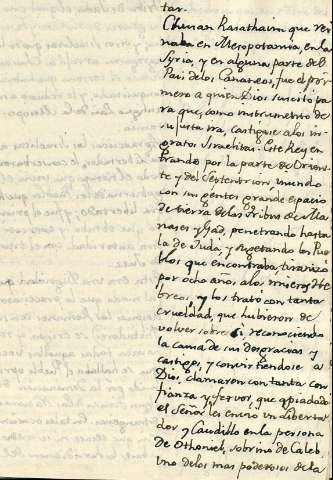 tar.
Chusan Rasathaim que Rei
naba en Mesopotamia, en la
Syria, y en alguna parte del
Pais delos Cananeos, fue el pri
mero a quien Dios suscitó pa
ra que, como instrumento de
su justa ira, castigase a los in
gratos Israelitas. Este Rey en
trando por la parte de Orien
te y del Septentrion, inundo
con sus gentes grande espacio
de tierra delas Tribus de Ma
nases y Gad, penetrando hasta
la de Judá, y sugetando los Pue
blos que encontraba, tiranizó
por ocho años alos miseros He
breos, y los trato con tanta
crueldad, que hubieron de
volver sobre si, reconociendo
la causa de sus desgracias y
castigos, y convirtiendose a
Dios, clamaron con tanta con
fianza y fervor, que apiadado
el Señor les envio un liberta
dor y Caudillo en la persona
de Othoniel, sobrino de Caleb,
uno delos mas poderosos de la